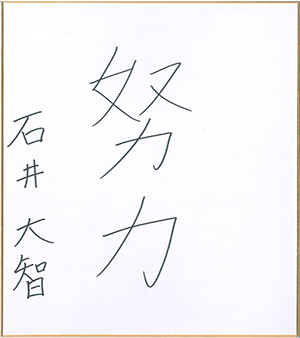 努力
石井大智